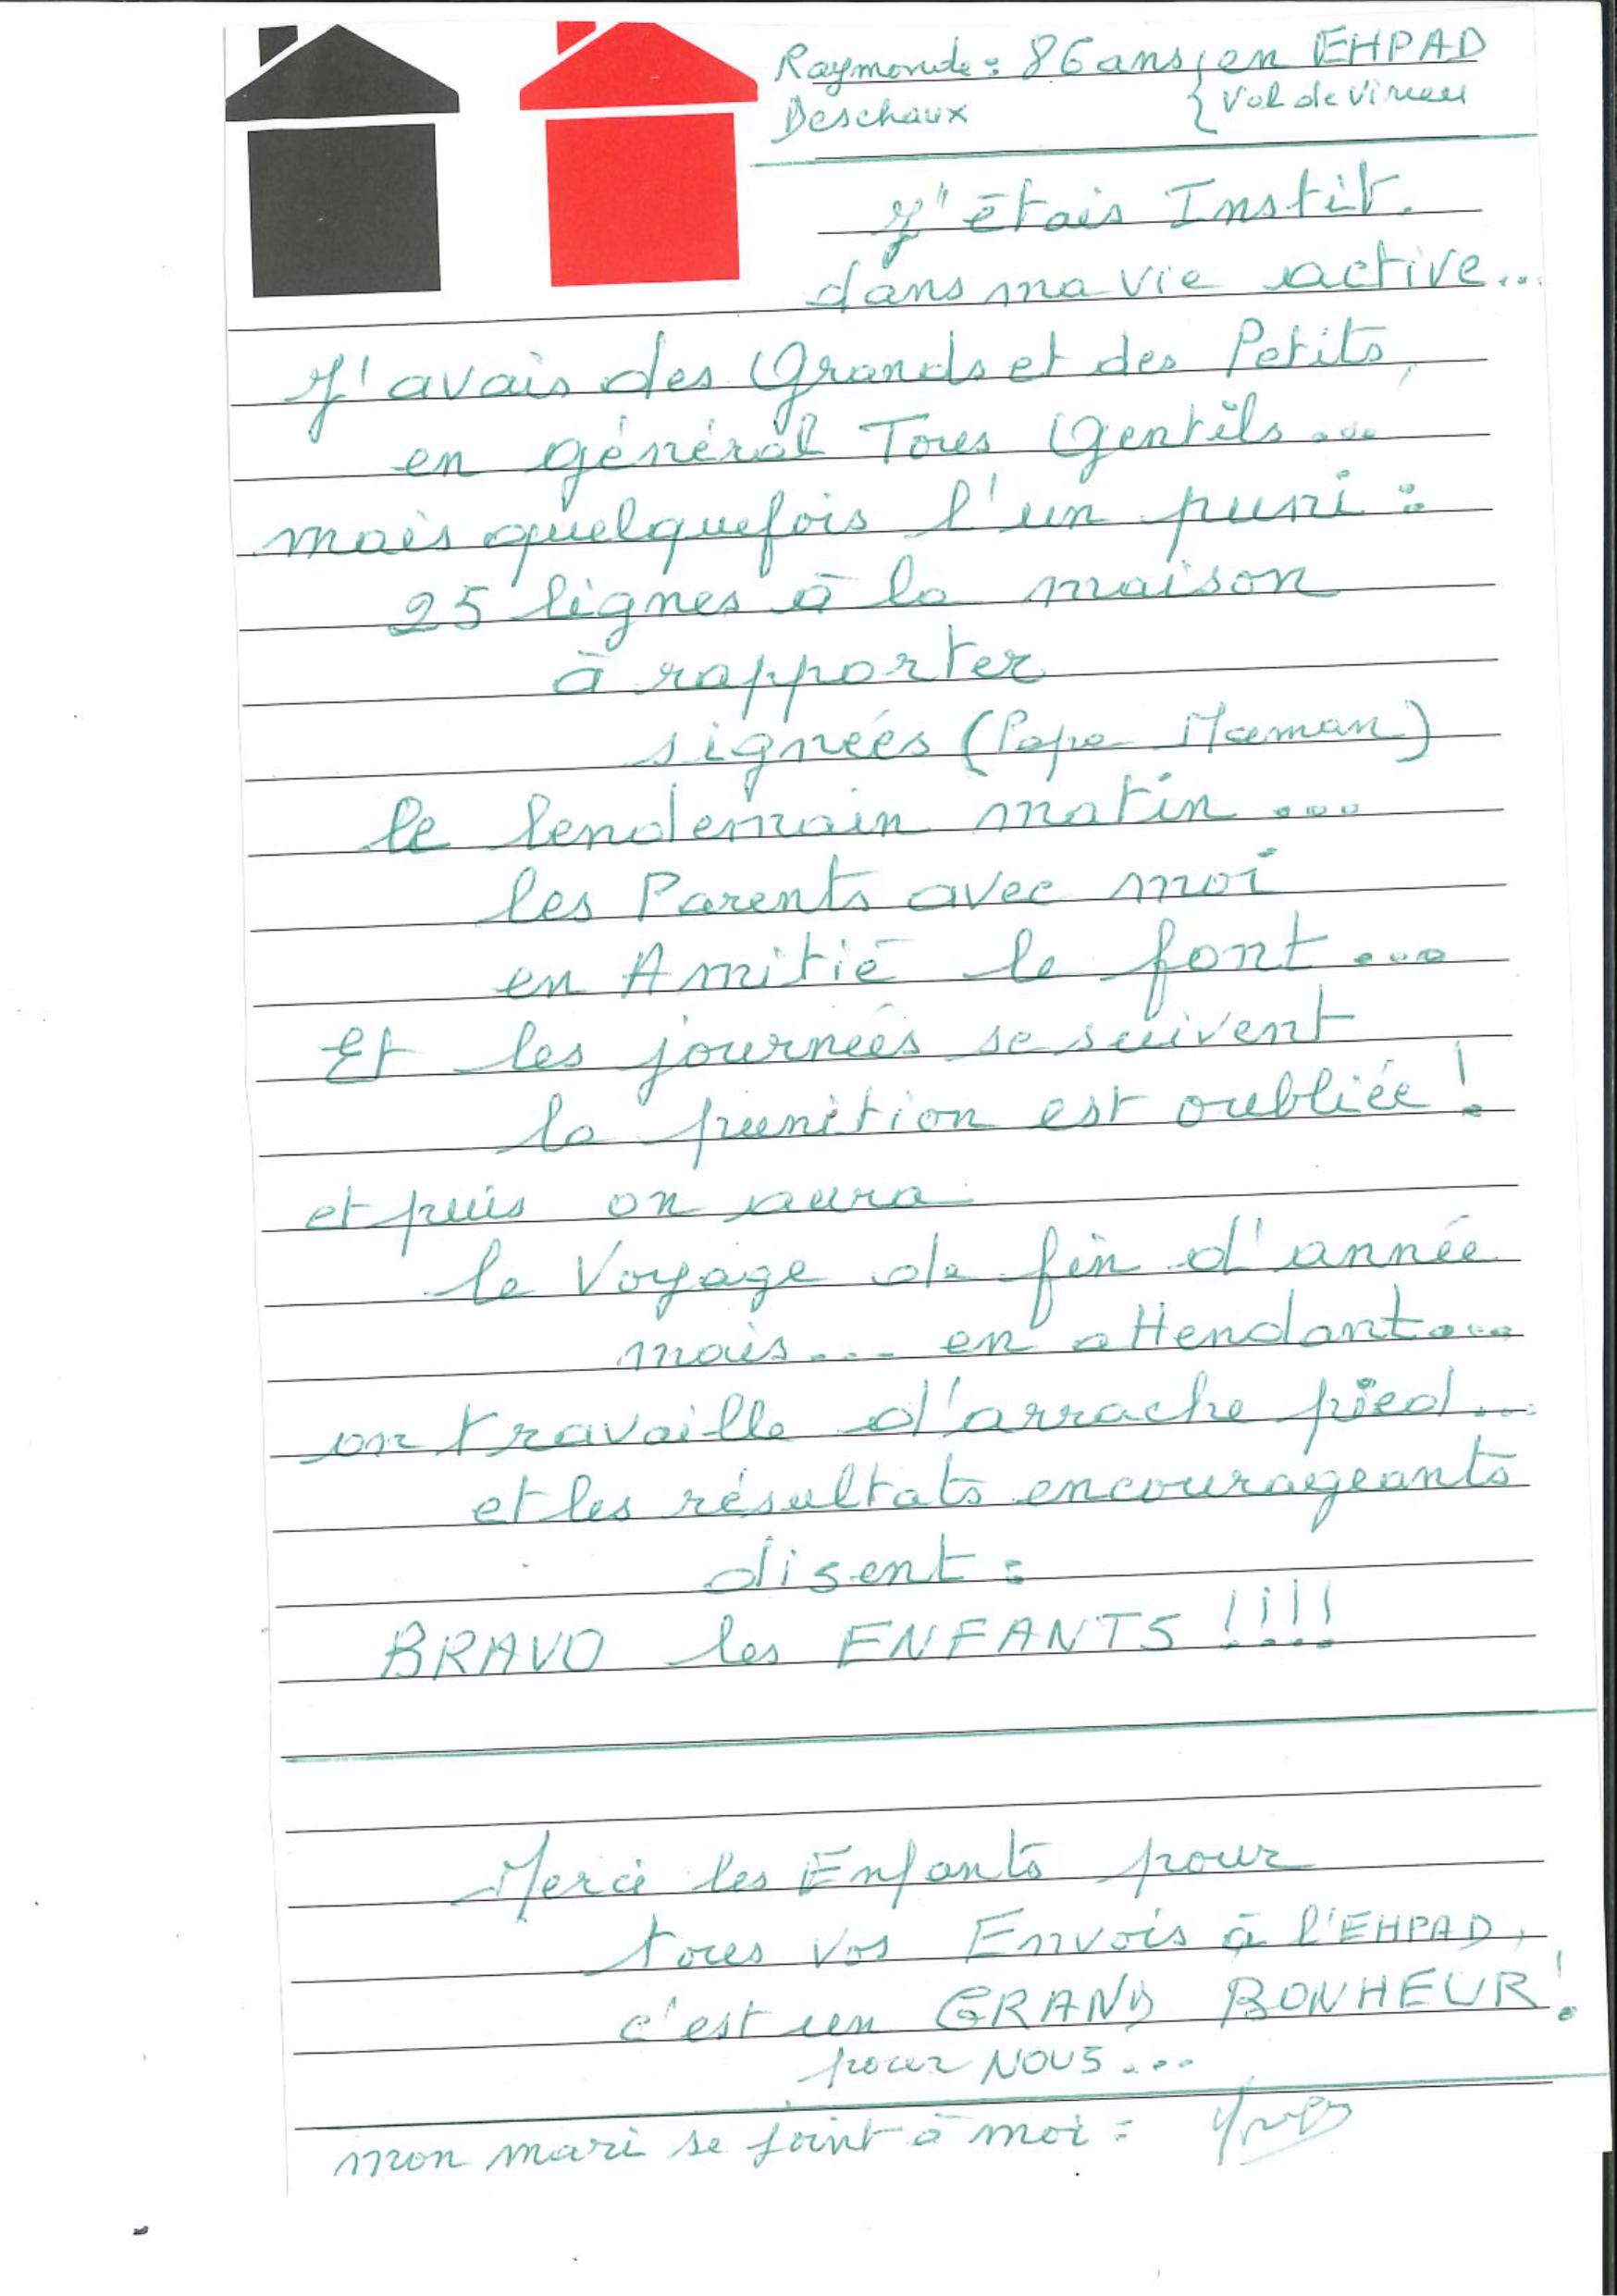 Raymonde : 86 ans, en EHPAD
Deschaux { Val de Virieu
J'étais Instit.
dans ma vie active...
J'avais des Grands et des Petits,
en général Tous Gentils...
mais quelquefois l'un puni :
25 lignes à la maison
à rapporter
signées (Papa Maman)
le lendemain matin...
les Parents avec moi
en Amitié le font...
Et les journées se suivent
la punition est oubliée !
et puis on aura
le Voyage de fin d'année
mais... en attendant...
on travaille d'arrache pied...
et les résultats encourageants
disent :
BRAVO les ENFANTS !!!!
Merci les Enfants pour
tous vos Envois à l'EHPAD,
c'est un GRAND BONHEUR !
pour NOUS...
mon mari se joint à moi : Yves